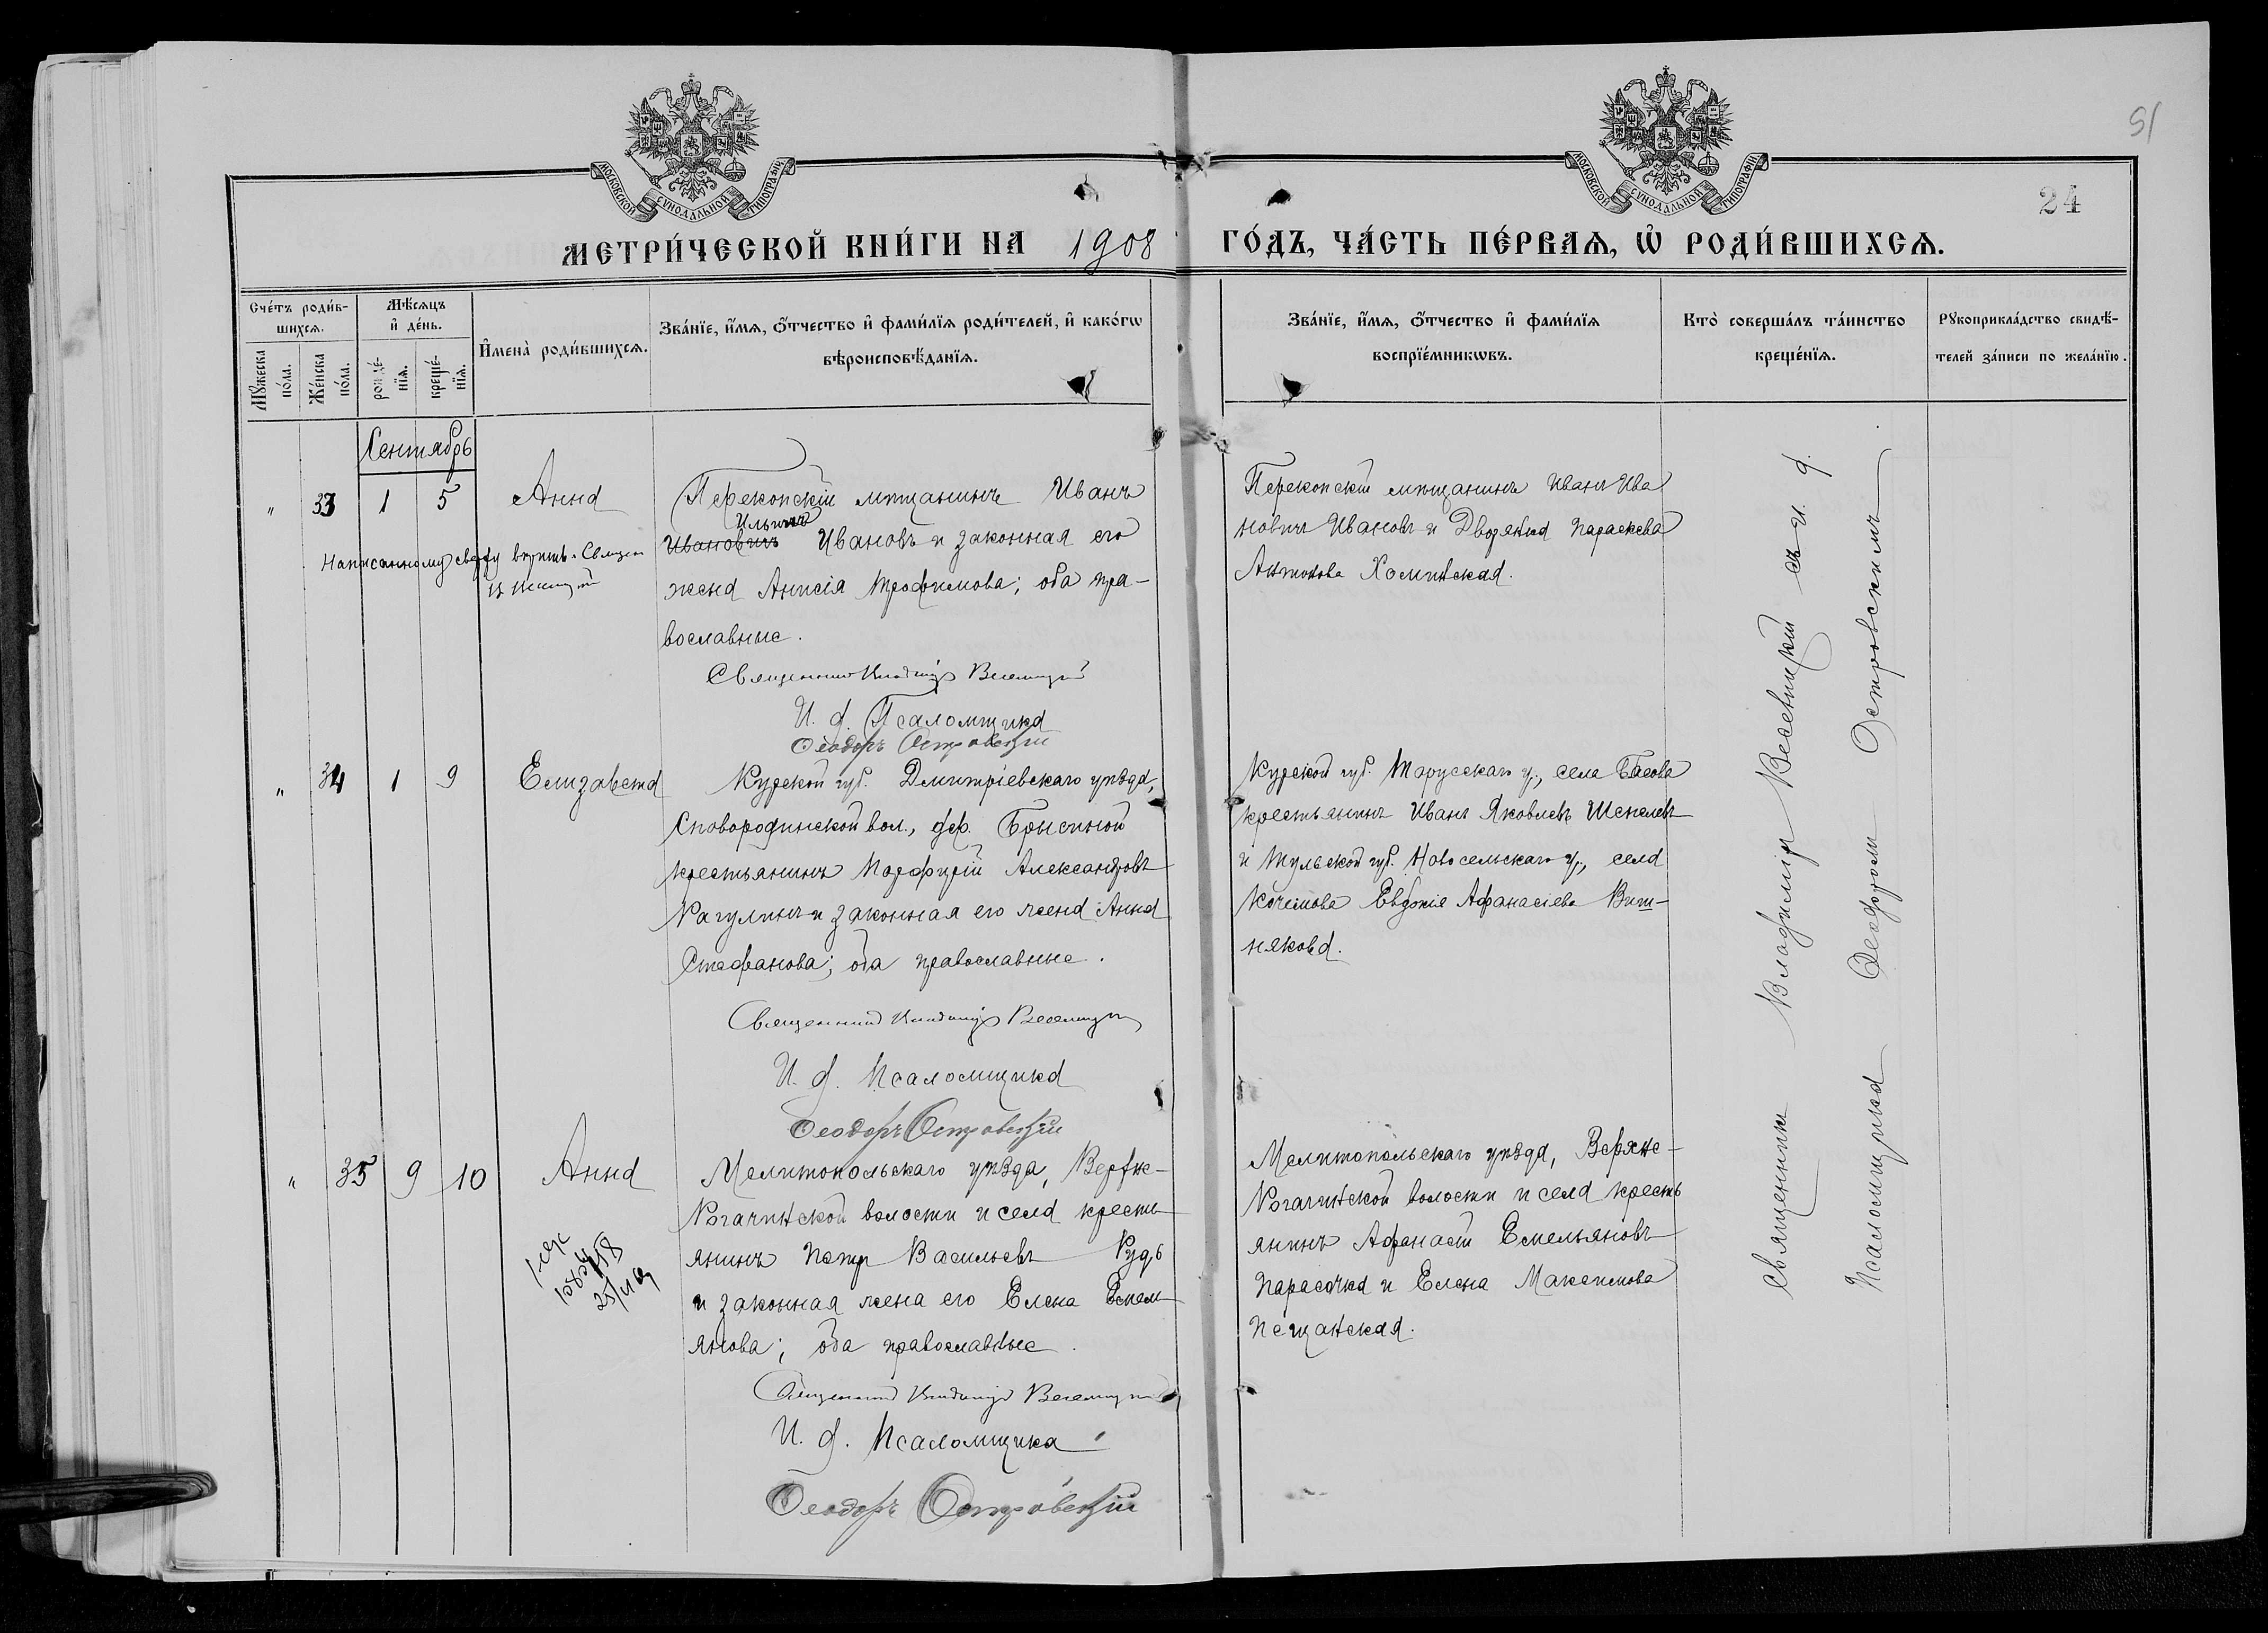 51
24
МОСКОВСКОЙ СѴНОДАЛЬНОЙ ТИПОГРАФІИ
МОСКОВСКОЙ СѴНОДАЛЬНОЙ ТИПОГРАФІИ
МЕТРИ́ЧЕСКОЙ КНИ́ГИ НА 1908 ГО́ДЪ, ЧА́СТЬ ПЕ́РВАѦ, Ѡ҆ РОДИ́ВШИХСѦ.
Сче́тъ роди́в-
шихсѧ.
Мꙋ́жеска
по́ла.
Же́нска
по́ла.
Мѣ́сѧцъ
и҆ де́нь.
рожде́-
нїѧ.
креще́-
нїѧ.
И҆мена̀ роди́вшихсѧ.
Зва́нїе, и҆́мѧ, ѻ҆́тчество и҆ фами́лїѧ роди́телей, и҆ како́гѡ
вѣроисповѣ́данїѧ.
Зва́нїе, и҆́мѧ, ѻ҆́тчество и҆ фами́лїѧ
воспрїе́мникѡвъ.
Кто̀ соверша́лъ та́инство
креще́нїѧ.
Рꙋкоприкла́дство свидѣ́-
телей за́писи по жела́нїю.
Сентябрь
" 33 1 5 Анна
Перекопскій мѣщанинъ Иванъ
Ильичъ
Ивановичъ Ивановъ и законная его
жена Анисія Трофимова; оба пра-
вославные.
Написанному сверху вѣрить. Священ
Священникъ Владиміръ Веселицкій
И. д. Псаломщика
Ѳеодоръ Островскій
Перекопскій мѣщанинъ Иванъ Ива
новичъ Ивановъ и Дворянка Параскева
Антонова Хоминская.
" 34 1 9 Елизавета
Курской губ. Дмитріевскаго уѣзда,
Сковородинской вол., дер.
крестьянинъ Порфирій Александровъ
Рагулинъ и законная его жена Анна
Стефанова; оба православные.
Священникъ Владиміръ Веселицкій
И. д. Псаломщика
Ѳеодоръ Островскій
Курской губ. Тарусскаго у., села Басова
крестьянинъ Иванъ Яковлевъ Шепелевъ
и Тульской губ. Новосельскаго у., села
Евдокія Афанасіева Виш-
някова.
" 35 9 10 Анна
Мелитопольскаго уѣзда, Верхне-
Рогачинской волости и села кресть
янинъ Петръ Васильевъ Рудь
и законная жена его Елена Емель
янова; оба православные.
Священникъ Владиміръ Веселицкій
И. д. Псаломщика
Ѳеодоръ Островскій
Мелитопольскаго уѣзда, Верхне-
Рогачинской волости и села кресть
янинъ Афанасій Емельяновъ
Парасочка и Елена Максимова
Пещанская.
Священникъ Владиміръ Веселицкій съ и. д.
Псаломщика Ѳеодоромъ Островскимъ